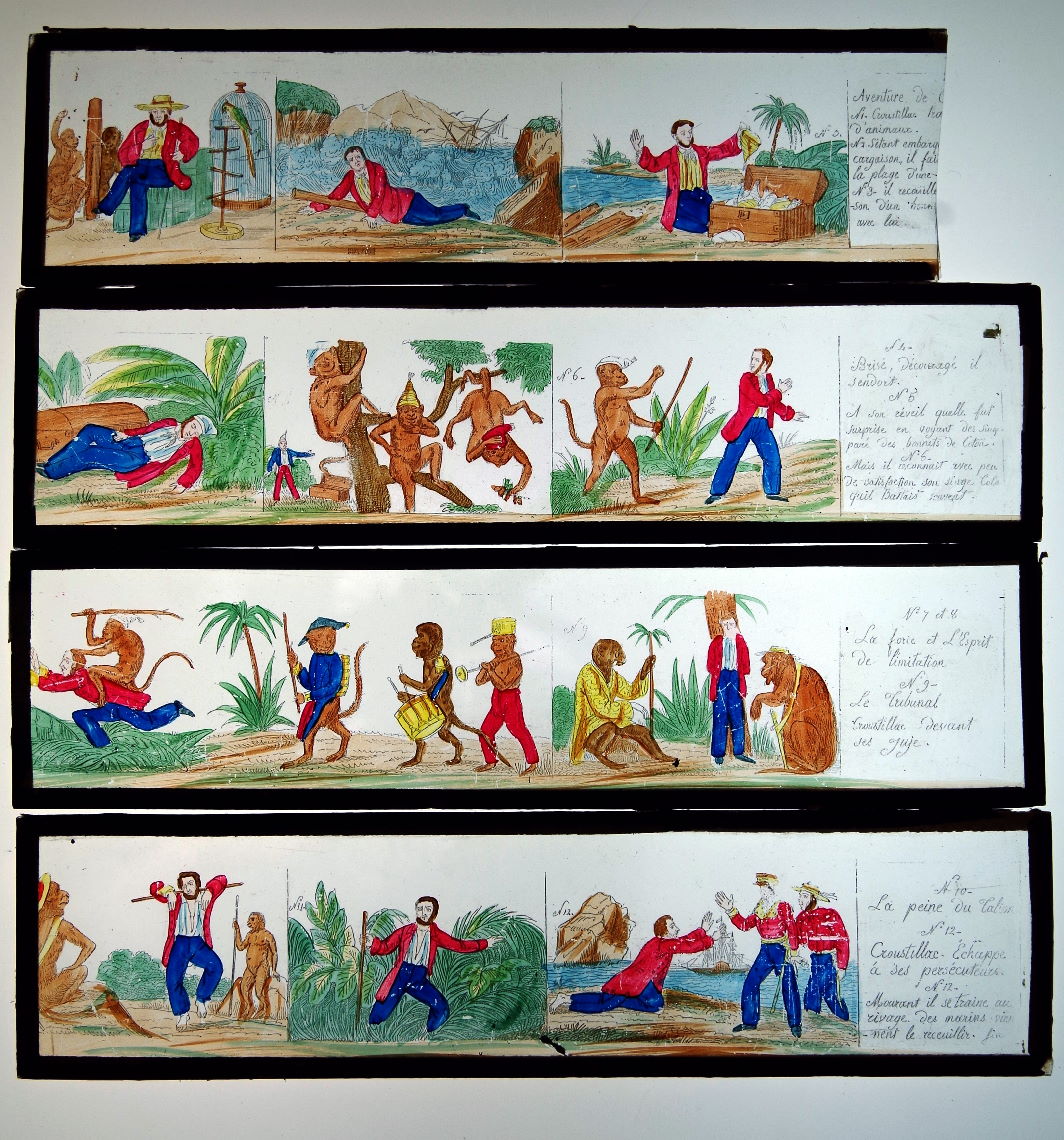 Aventure de C
N1. Croustillac
d'animaux.
N2 S'étant embarq
cargaison, il fai
la plage d'une
N°3- il recueille
-son d'un
avec lui.
N°3.
N°4-
Brisé, découragé il
s'endort.
N°5
A son réveil quelle fut
surprise en voyant des sing-
paré des bonnets de coton.
N°6-
Mais il reconnait avec peu
de satisfaction son singe Coco
qu'il Battait souvent.
N°6-
N°7 et 8
La force et L'Esprit
de limitation
N°9-
Le Tribunal
Croustillac devant
ses juje.
N 9
N°10-
La peine du Talion
N°12-
Croustillac Echappe
à ses persécuteurs.
N°12-
Mourant il se traine au
rivage des marins vien
-nent le receuillir. fin
N11.
N12.